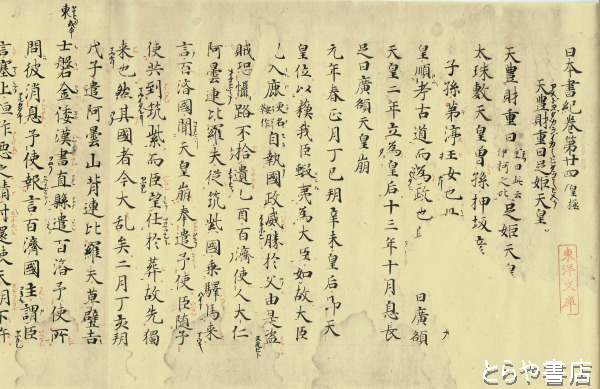 日本書紀巻第廿四 皇極
天豐財重日足姫天皇
天豐財重日 重日此云伊柯之比 足姫天皇
太珠敷天皇曾孫押坂彦
子孫第渟王女也
皇順考古道而為政也 曰廣額
天皇二年立為皇后十三年十月息長
足曰廣額天皇崩
元年春正月丁巳朔辛未皇后即天
皇位以蘓我臣蝦夷為大臣如故大臣
入鹿 更名鞍作 自執國政威勝於父由是盗
賊恐懾路不拾遺乙酉百濟使人大仁
阿曇連比羅夫従筑紫國乘驛馬来
言百濟國聞天皇崩奉遣弔使臣随弔
使共到筑紫而臣望仕於葬故先獨
来也然其國者今大乱矣二月丁亥朔
戊子遣阿曇山背連比羅夫草壁吉
士磐金倭漢書直縣遣百濟弔使所
問彼消息弔使報言百濟國主謂臣
言塞上恒作悪之請付還使天
東洋文庫
とらや書店